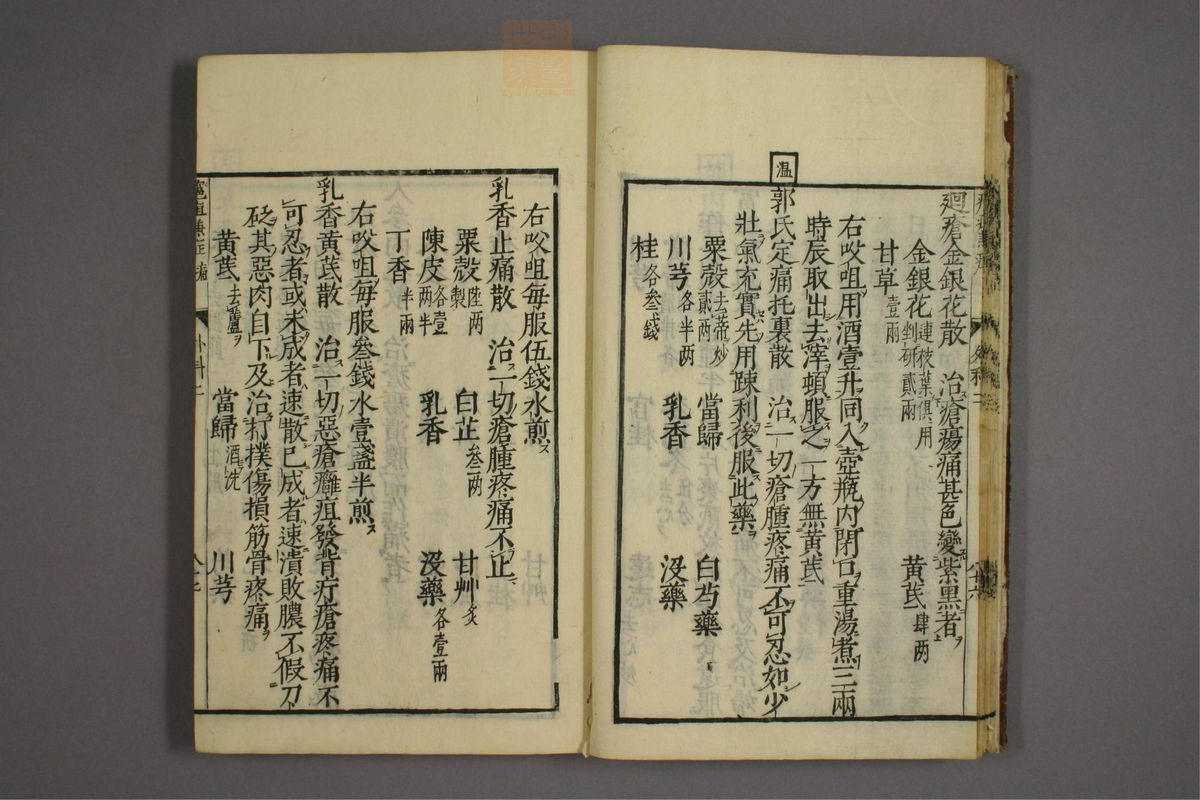 廻瘡金銀花散 治瘡瘍痛甚色變紫黑者
金銀花 連枝葉俱用剉研貳兩 黃芪 肆两
甘草 壹兩
右㕮咀用酒壹升同入壺瓶内閉口重湯煮三兩
時辰取出去滓頓服之一方無黃芪
溫
郭氏定痛托裏散 治一切瘡腫疼痛不可忍如少
壯氣充實先用踈利後服此藥
粟殼 去蒂炒貳两 當歸 白芍藥
川芎 各半两 乳香 没藥
桂 各叁錢
右㕮咀每服伍錢水煎
乳香止痛散 治一切瘡腫疼痛不止
粟殼 陸两製 白芷 叁两 甘艸 炙
陳皮 各壹两半 乳香 没藥 各壹兩
丁香 半兩
右㕮咀每服叁錢水壹盞半煎
乳香黃芪散 治一切惡瘡癰疽發背疔瘡疼痛不
可忍者或未成者速散已成者速潰敗膿不假刀
砭其惡肉自下及治打撲傷損筋骨疼痛
黃芪 去蘆 當歸 酒洗 川芎